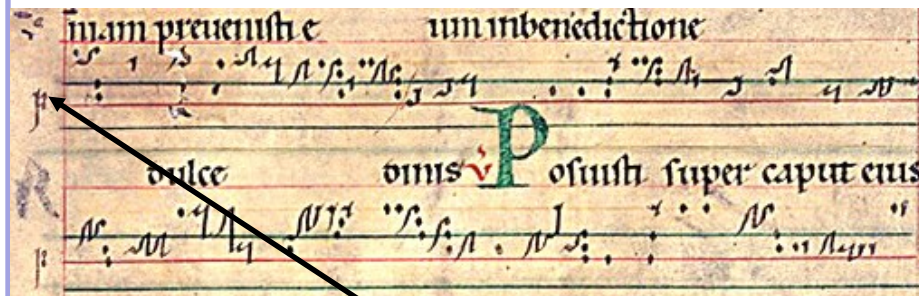 niam preuenisti e um inbenedictione
dulce dinis v Posuisti super caput eius